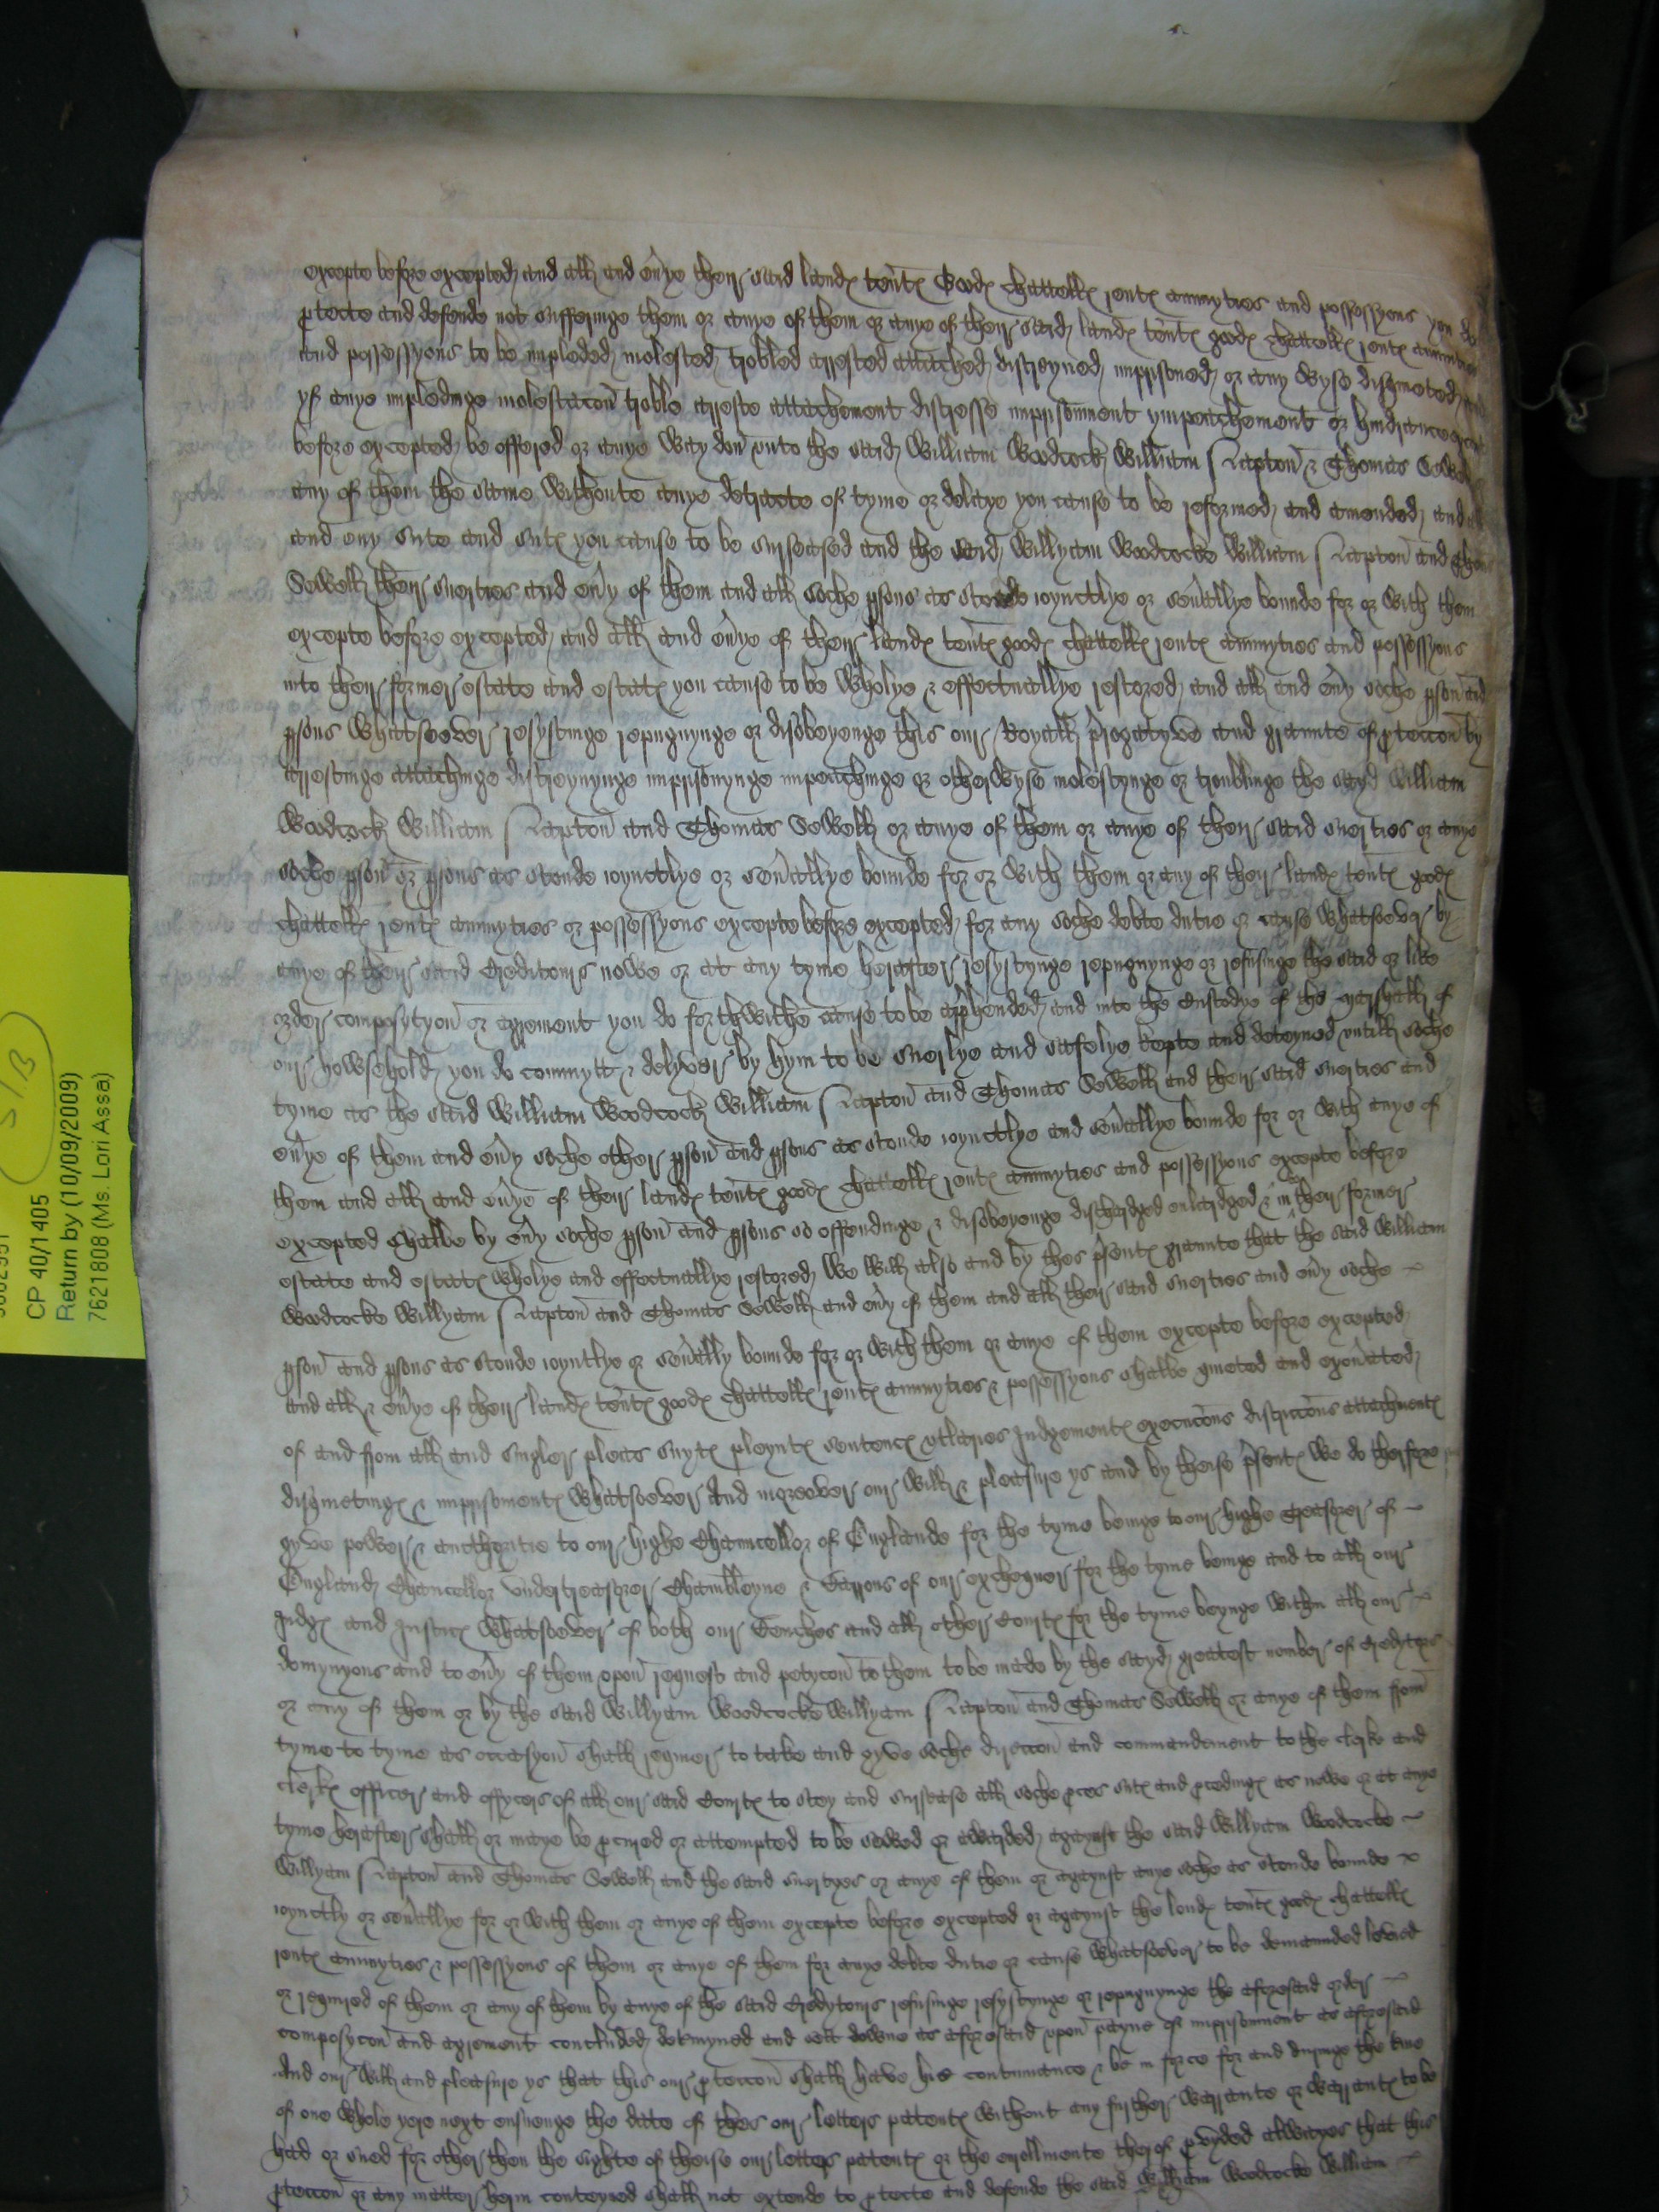 excepte before excepted and all and eny'e their said landℯ tentℯ Goodℯ chattellℯ rentℯ annuyties and possessyons you do
ptecte and defende not sufferinge them or anye of them or anye of their said landℯ tentℯ goodℯ chattellℯ rentℯ annuities
and possessyons to be impleded molested trobled arrested attached distreyned imprisoned or any wyse disquieted and
yf anye impledinge molestacon troble arreste attachement distresse imprisonment ympeachement or hindrance except
before excepted be offered or anye way don unto the said William Woodcock William Clapton & Thomas Sewell
any of them the same withoute anye detracte of tyme or delaye you cause to be reformed and amended and
and eny sute and sutℯ you cause to be surseased and the said Willyam Woodcocke William Clapton and Thomas
Sewell their suerties and eny of them and all soche psons as stande ioynctlye or seu'allye bounde for or with them
excepte before excepted and all and eu'ye of their landℯ tentℯ goodℯ chattellℯ rentℯ annuyties and possessyons
into their former estate and estatℯ you cause to be wholye & effectuallye restored and all and eu'y soche pson and
psons whatsoever resystinge repugnynge or disobeyenge this our Royall p'rogatyve and graunte of pteccon by
arrestinge attachinge distreynynge imprisonynge impeachinge or otherwyse molestynge or troublinge the sayd William
Woodcock William Clapton and Thomas Sewell or anye of them or anye of their said suerties or anye
soche pson or psons as stande ioynctlye or seu'allye bounde for or with them or any of their landℯ tentℯ goodℯ
chattellℯ rentℯ annuyties or possessyons excepte before excepted for any soche debte dutie or cause whatsoever by
anye of their said Creditours nowe or at any tyme herafter resystynge repugnynge or refusinge the said or like
order composytyon or agrement you do forthwithe cause to be app'hended and into the Custodye of the marshall of
our howsehold you do commytt & delyver by hym to be suerlye and safelye kepte and deteyned untill soche
tyme as the said William Woodcock William Clapton and Thomas Sewell and their said suerties and
eu'ye of them and eu'y soche other pson and psons as stande ioynctlye and seu'allye bounde for or with anye of
them and all and eu'ye of their landℯ tentℯ goodℯ chattellℯ rentℯ annuyties and possessyons excepte before
excepted shalbe by eu'y soche pson and psons so offendinge & disobeyenge discharged enlardged & in their former
estate and estatℯ wholye and effectuallye restored We will also and by thes p'sentℯ graunte that the said William
Woodcocke Willyam Clapton and Thomas Sewell and eu'y of them and all their said suerties and eu'y soche
pson and psons as stande ioyntlye or seu'ally bounde for or with them or anye of them excepte before excepted
and all & eu'ye of their landℯ tentℯ goodℯ chattellℯ rentℯ annuyties & possessyons shalbe quieted and exon'ated
of and from all and singler pleas suytℯ pleyntℯ sentencℯ utlaries Judgementℯ execucons distraccons attachmentℯ
disquietingℯ & imprisomentℯ whatsoever And moreover our will & pleasure ys and by theise p'sentℯ We do therfore
gyve power & aucthoritie to our highe Chauncellor of Englande for the tyme beinge to our highe Treasorer of
England Chancellor undertreasorer Chambleyne & Barrons of our exchequer for the tyme beinge and to all our
Judgℯ and Justicℯ whatsoever of both our Benches and all other Courtℯ for the tyme beynge within all our
domynyons and to eu'y of them upon request and petycon to them to be made by the sayd greatest nomber of Credytors
or any of them or by the said Willyam Woodcocke Willyam Clapton and Thomas Sewell or anye of them from
tyme to tyme as occasyon shall requier to take and gyve soche direccon and commandement to the clerke and
clerkℯ officer and offycers of all our said Courtℯ to stey and surcease all soche pces sutℯ and pcedingℯ as nowe or at anye
tyme herafter shall or maye be pcured or attempted to be sewed or awarded agaynst the said Willyam Woodcocke
Willyam Clapton and Thomas Sewell and the said suertyes or anye of them or agaynst anye soche as stande bounde
ioynctly or seu'allye for or with them or anye of them excepte before excepted or agaynst the landℯ tentℯ goodℯ chattellℯ
rentℯ annuyties & possessyons of them or anye of them for anye debte dutie or cause whatsoever to be demaunded levied
or required of them or any of them by anye of the said Credytours refusinge resystynge or repugnynge the aforesaid order
composycon and agrement concluded determyned and sett downe as aforesaid upon payne of imprisonment as aforesaid
And our will and pleasure ys that this our pteccon shall have his contynuance & be in force for and duringe the time
of one whole yere next ensuenge the date of thes our letters patentℯ without any further warrante or warrantℯ to be
had or sued for other then the sighte of theise our letters patentℯ or the enrollmente therof pvyded alwayes that this
pteccon or any matter herin conteyned shall not extende to ptecte and defende the said William Woodcocke William
CP 40/1405
Return by (10/09/2009)
7621808 (Ms. Lori Assa)